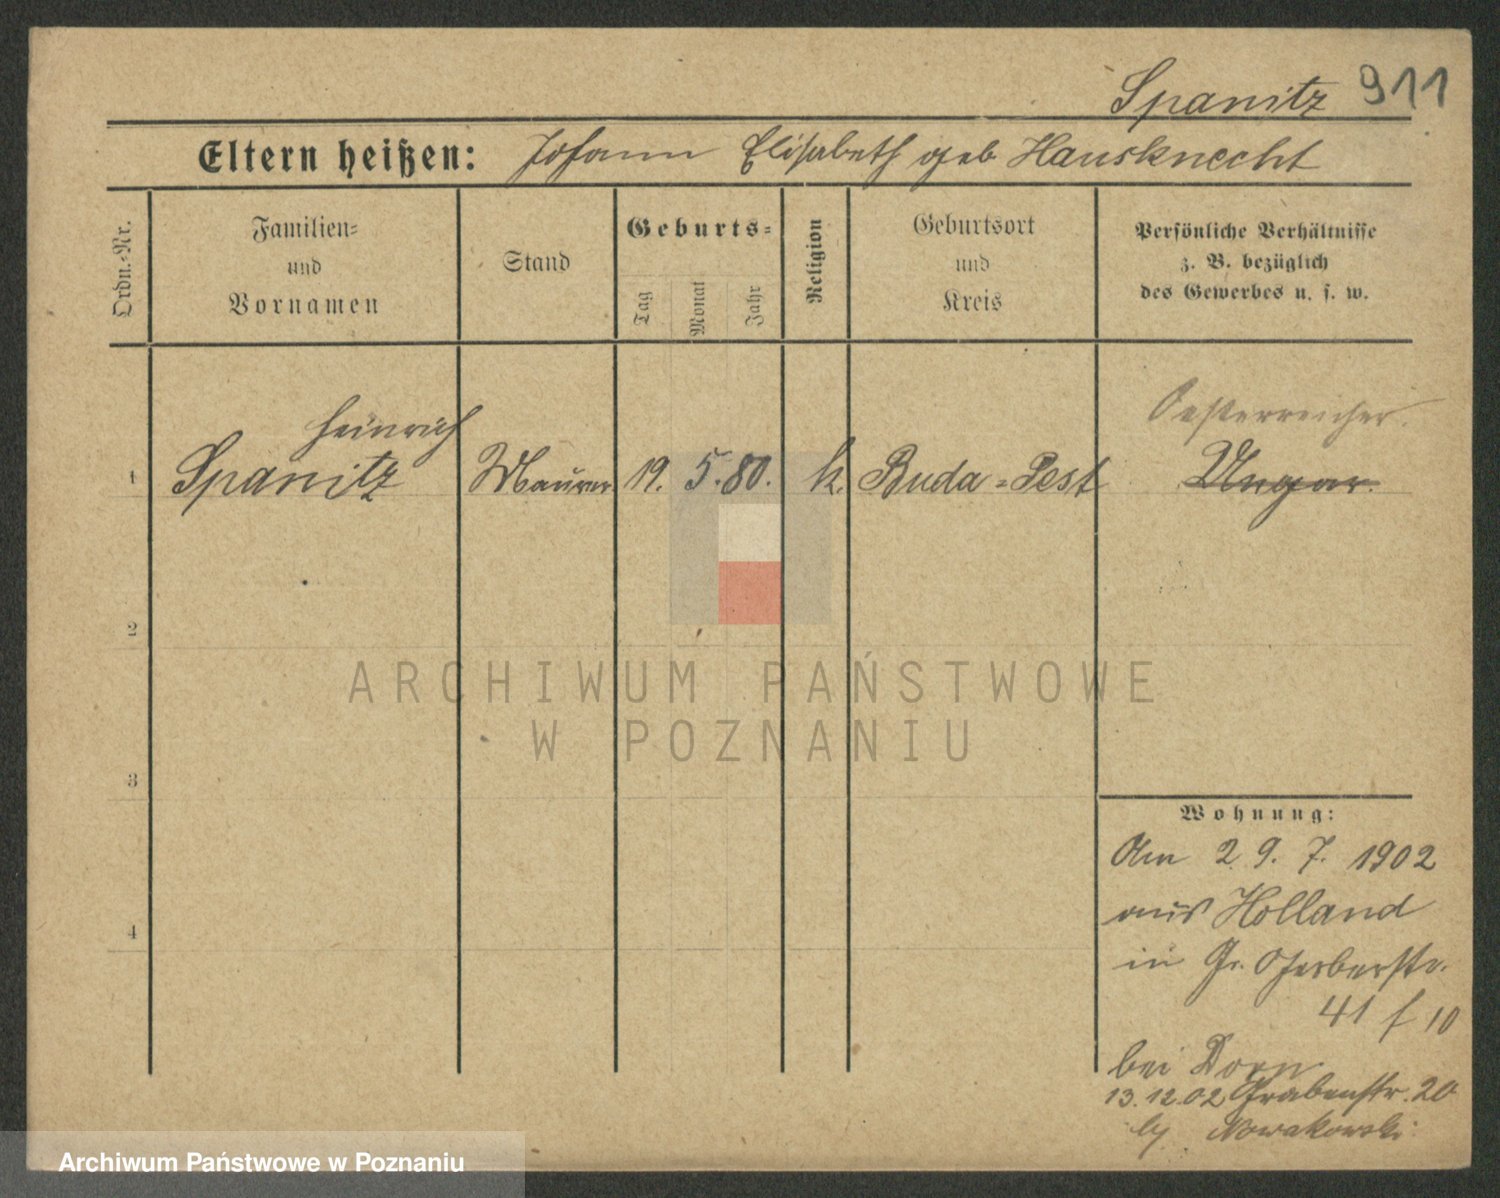 Spanitz 911
Eltern heißen: Johann Elisabeth geb Hausknecht
Ordn.-Nr.
Familien-
und
Vornamen
Stand
Geburts-
Tag
Monat
Jahr
Religion
Geburtsort
und
Kreis
Persönliche Verhältnisse
z. B. bezüglich
des Gewerbes u. s. w.
Heinrich
Oesterreicher.
1 Spanitz Maurer 19. 5. 80. k. Buda-Pest Ungar.
2
ARCHIWUM PAŃSTWOWE
W POZNANIU
3
Wohnung:
Am 29. 7. 1902
aus Holland
4
in Gr. Gerberstr.
41 f 10
bei Dorn
13.12.02 Grabenstr. 20
Nowakowski
Archiwum Państwowe w Poznaniu